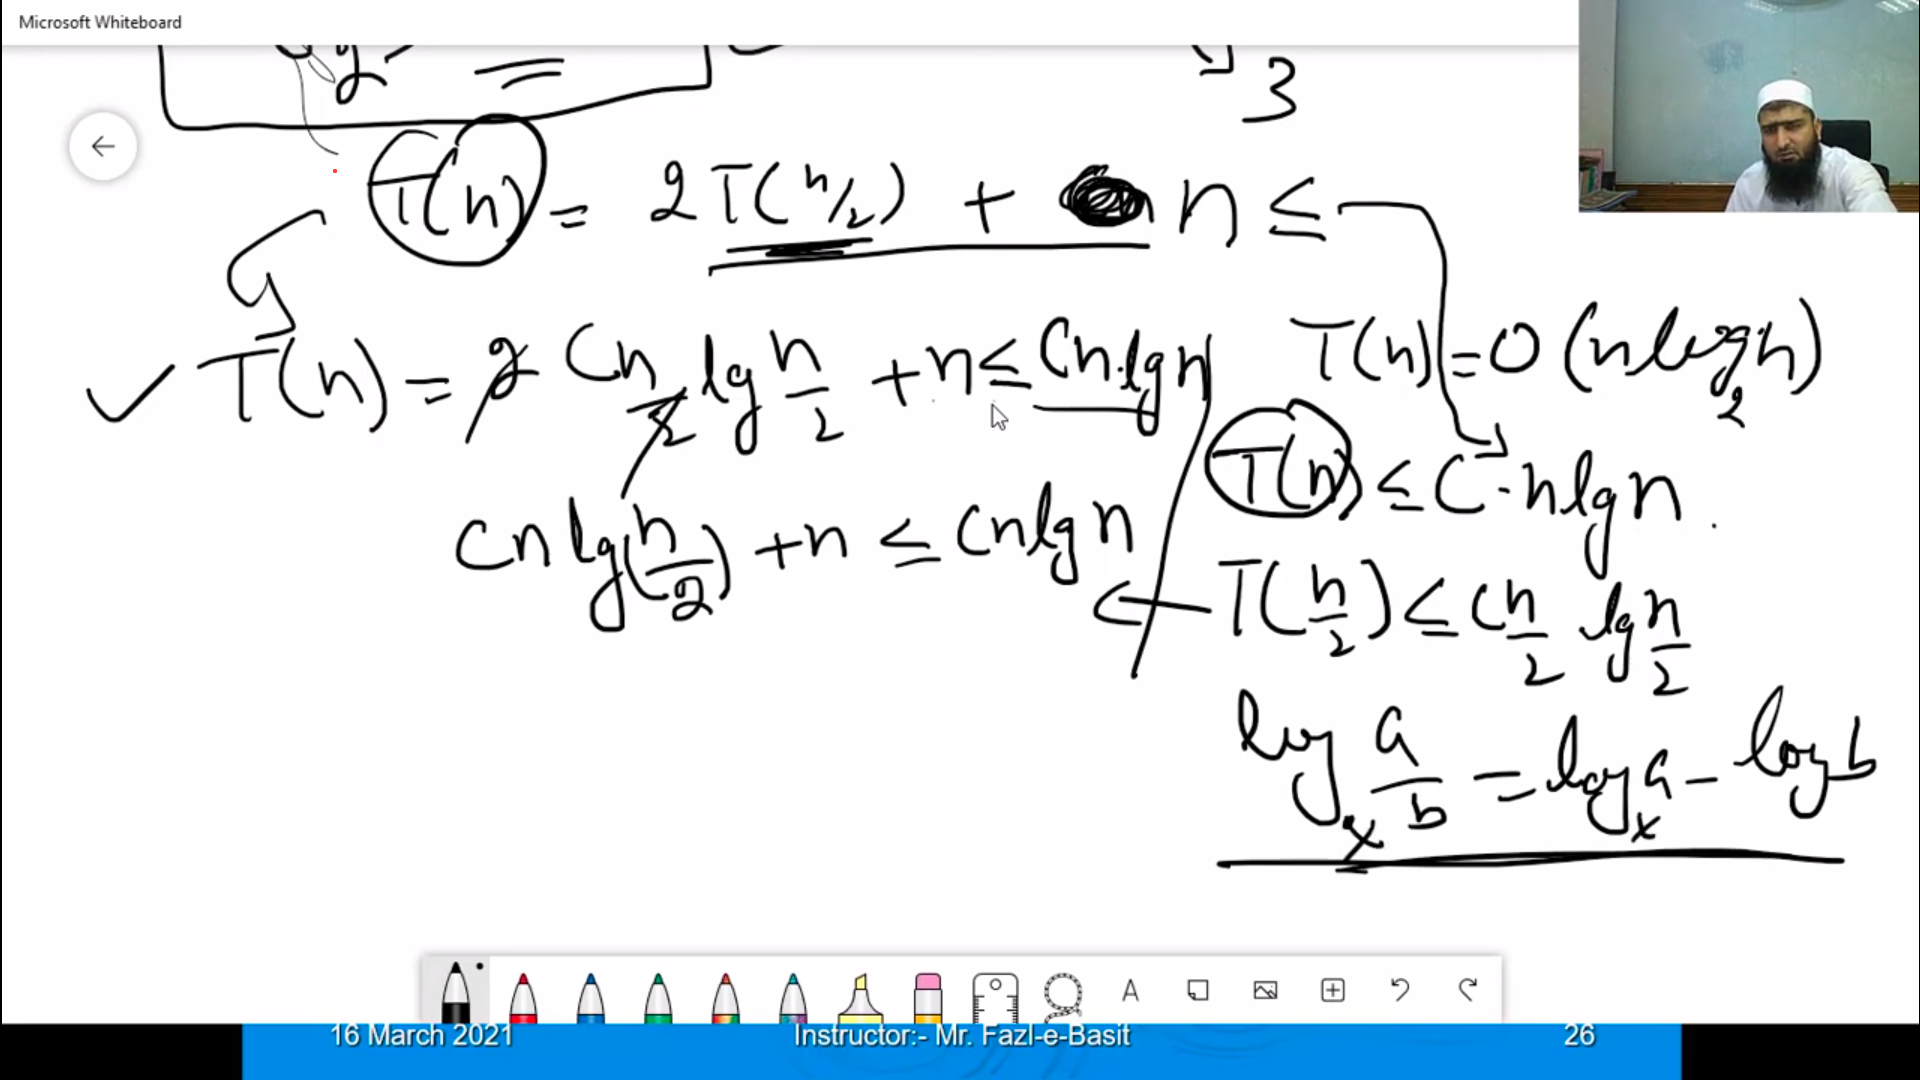 Microsoft Whiteboard
3
T(n) = 2T(n/2) + n ≤
T(n) = 2 Cn/2 lg n/2 + n ≤ Cn·lg n
T(n) = O(n log₂n)
T(n) ≤ C·n lg n.
Cn lg(n/2) + n ≤ Cn lg n
T(n/2) ≤ Cn/2 lg n/2
logₓ a/b = logₓ a - log b
A
16 March 2021
Instructor:- Mr. Fazl-e-Basit
26